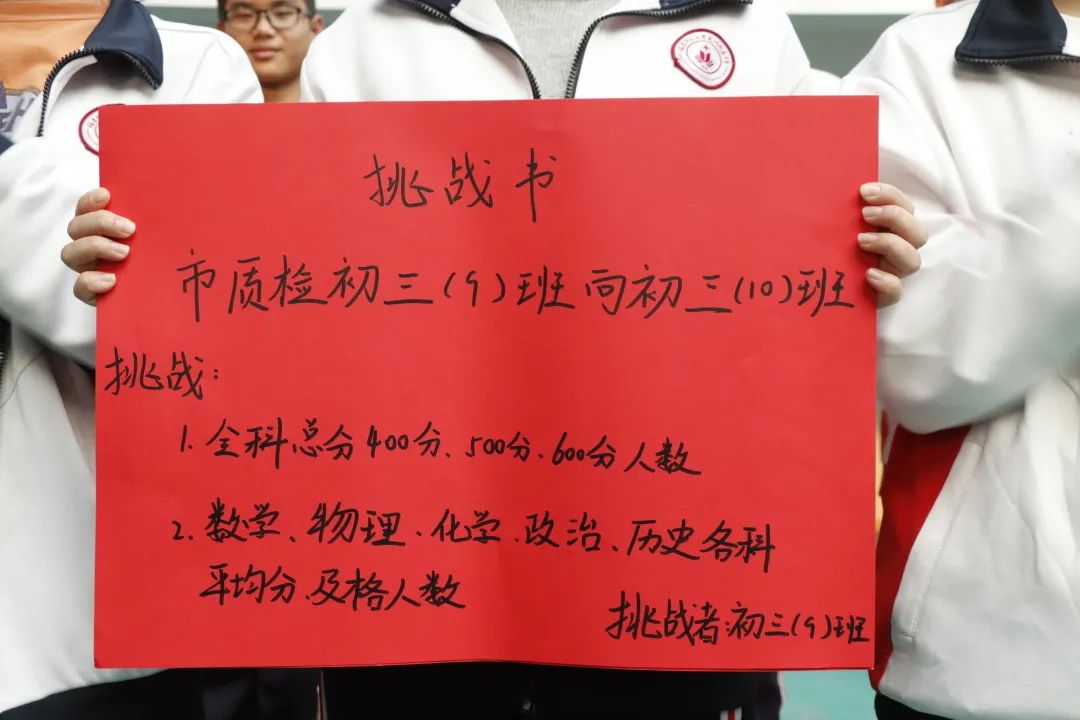 挑战书
市质检初三(9)班向初三(10)班
挑战：
1. 全科总分400分、500分、600分人数
2. 数学、物理、化学、政治、历史各科
平均分、及格人数
挑战者：初三(9)班